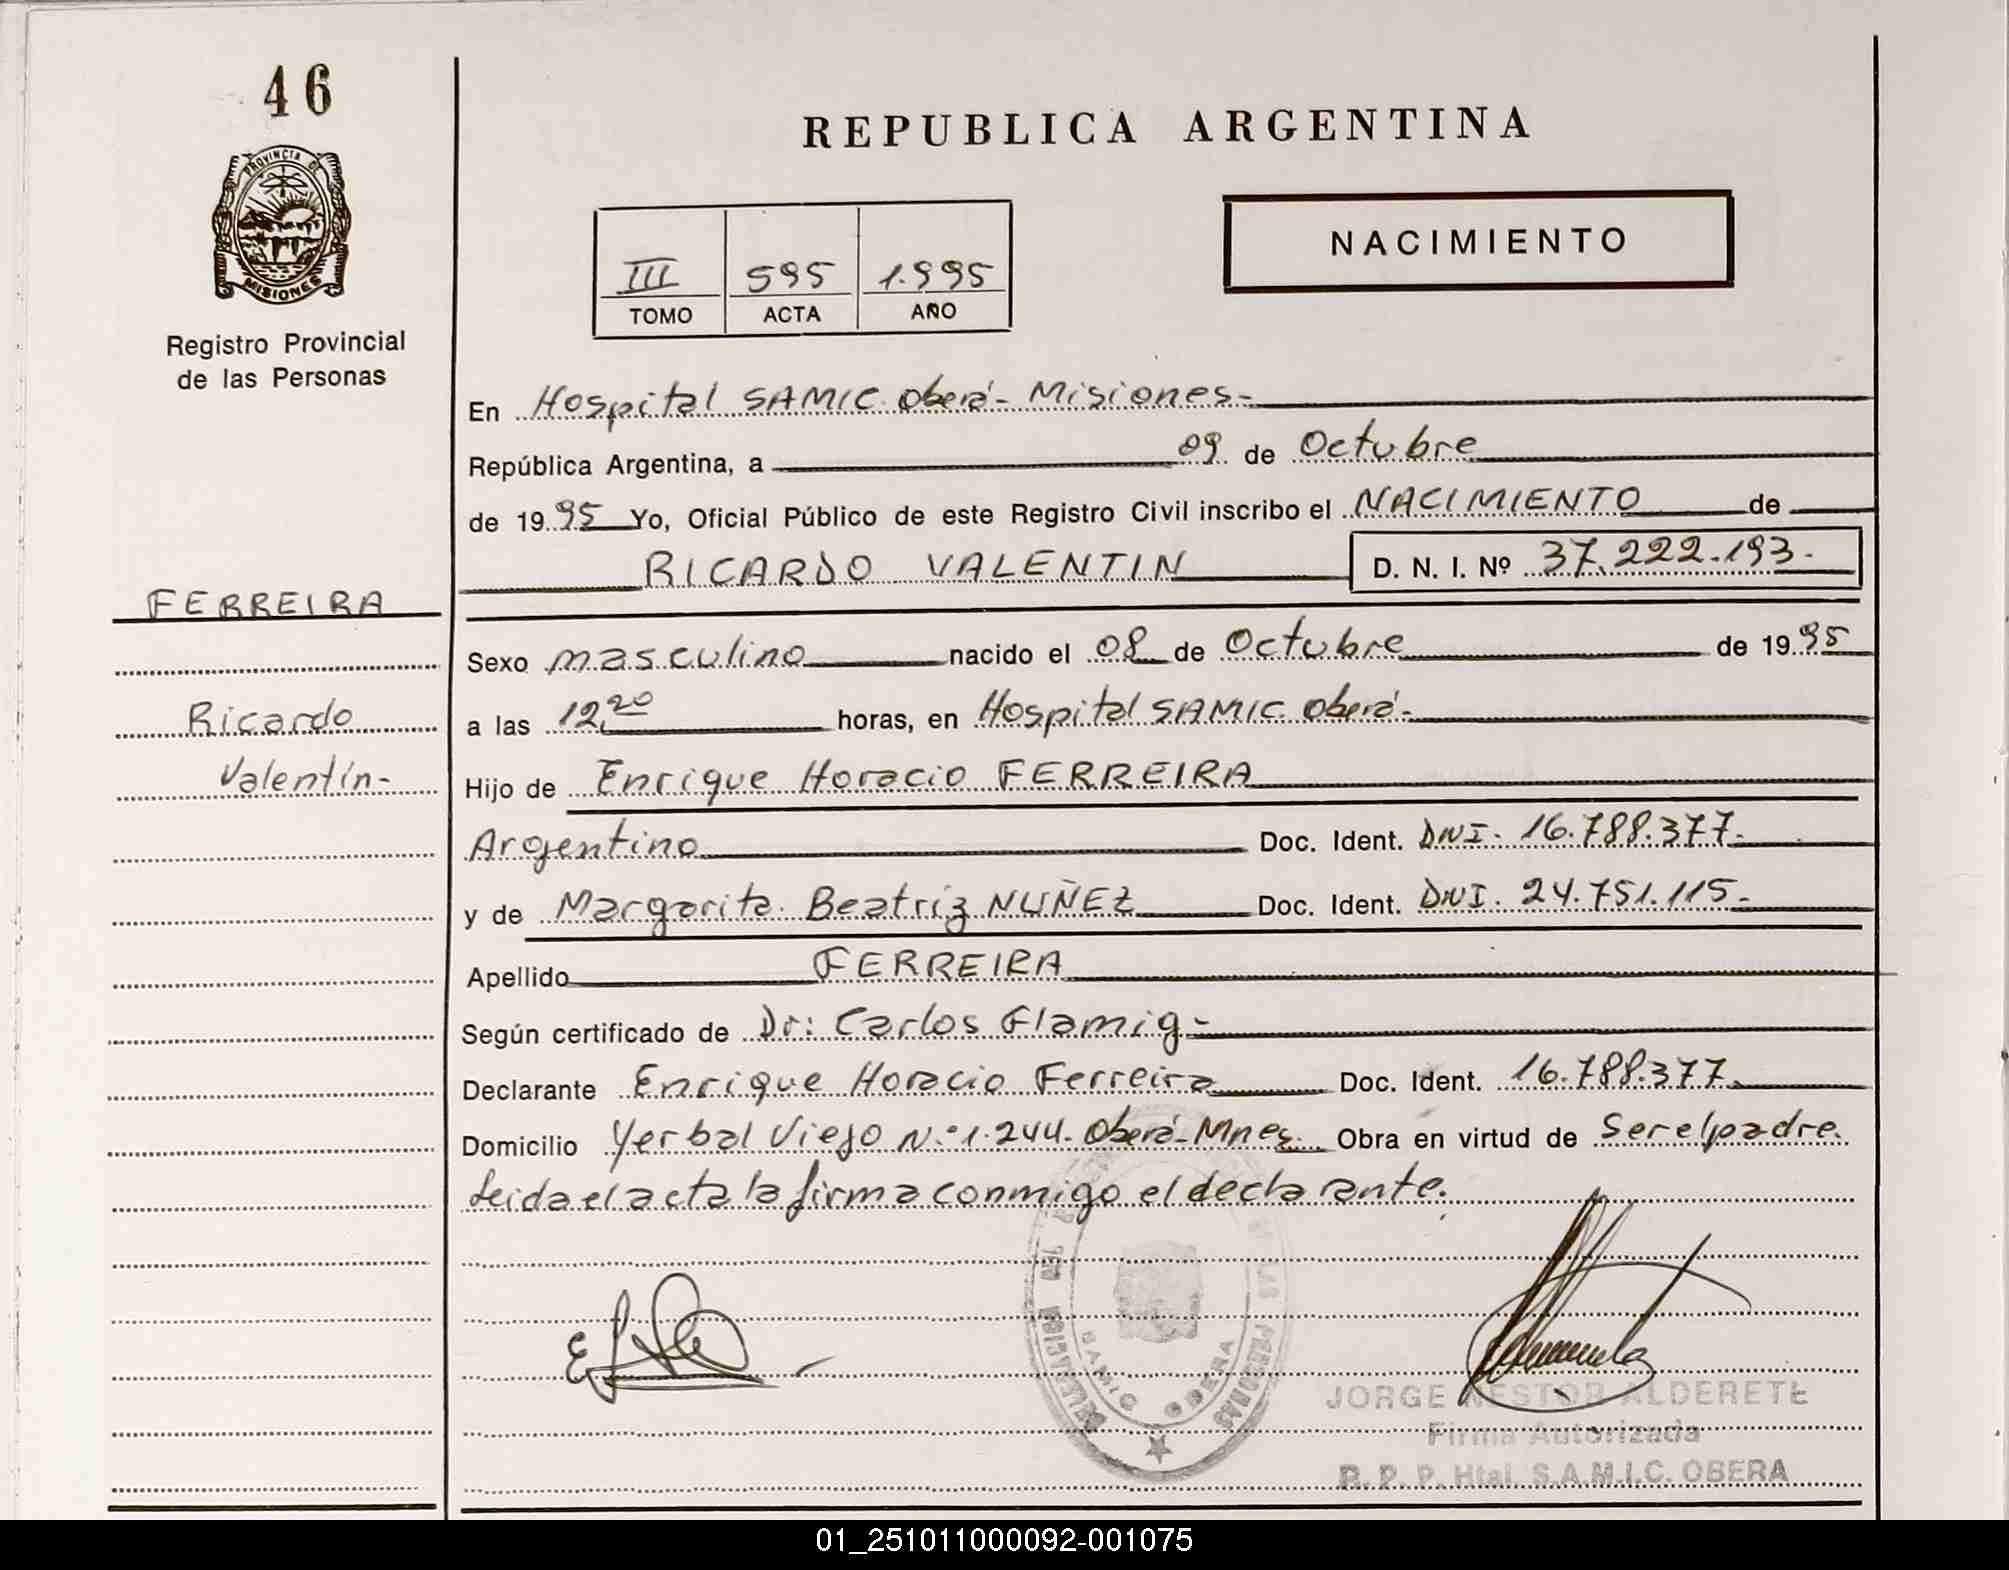 46
PROVINCIA DE
MISIONES
Registro Provincial
de las Personas
FERREIRA
Ricardo
Valentín-
REPUBLICA ARGENTINA
III 595 1.995
TOMO ACTA AÑO
NACIMIENTO
En Hospital SAMIC. Oberá- Misiones-
República Argentina, a 09 de Octubre
de 1995 Yo, Oficial Público de este Registro Civil inscribo el NACIMIENTO de
RICARDO VALENTIN D. N. I. Nº 37.222.193-
Sexo masculino nacido el 08 de Octubre de 1995
a las 12,20 horas, en Hospital SAMIC. Oberá-
Hijo de Enrique Horacio FERREIRA
Argentino Doc. Ident. DNI. 16.788.377-
y de Margarita Beatriz NUÑEZ Doc. Ident. DNI. 24.751.115-
Apellido FERREIRA
Según certificado de Dr: Carlos Flamig-
Declarante Enrique Horacio Ferreira Doc. Ident. 16.788.377
Domicilio Yerbal Viejo N.º 1.244. Oberá-Mnes. Obra en virtud de Ser el padre.
Leida el acta la firma conmigo el declarante.
DELEGACION
LAS PERSONAS
SAMIC OBERA
JORGE NESTOR ALDERETE
Firma Autorizada
R. P. P. Htal. S.A.M.I.C. OBERA
01_251011000092-001075